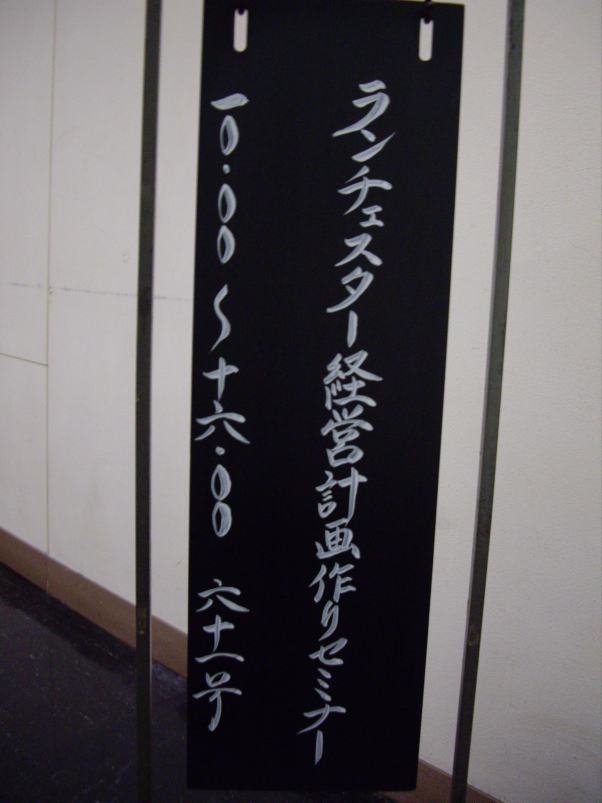 ランチェスター経営計画作りセミナー
一〇・〇〇～十六・〇〇 六十一号